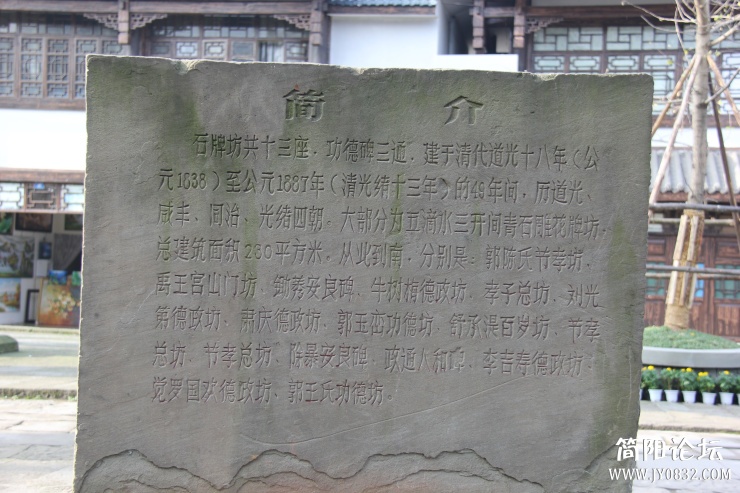 简 介
石牌坊共十三座，功德碑三通，建于清代道光十八年（公
元1838）至公元1887年（清光绪十三年）的49年间，历道光、
咸丰、同治、光绪四朝。大部分为五滴水三开间青石雕花牌坊，
总建筑面积260平方米，从北到南，分别是：郭陈氏节孝坊、
禹王宫山门坊、锄莠安良碑、牛树梅德政坊、孝子总坊、刘光
第德政坊、肃庆德政坊、郭玉峦功德坊、舒承湜百岁坊、节孝
总坊、节孝总坊、除暴安良碑、政通人和碑、李吉寿德政坊、
觉罗国欢德政坊、郭王氏功德坊。
简阳论坛
WWW.JY0832.COM